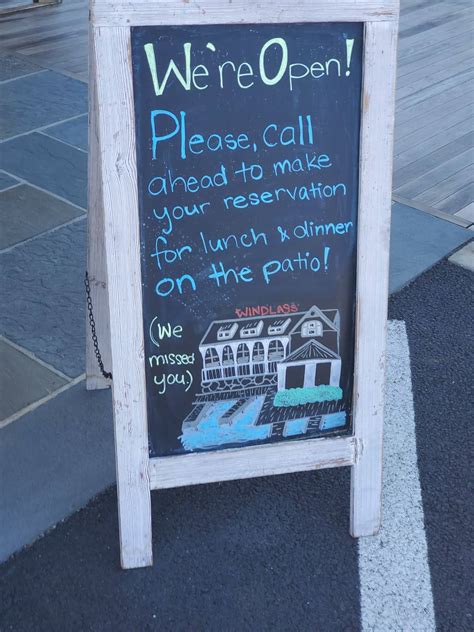 We're Open!
Please, call
ahead to make
your reservation
for lunch & dinner
on the patio!
(We
missed
you.)
WINDLASS